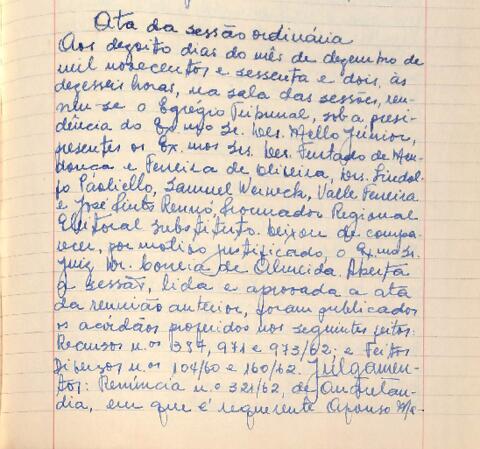 Ata da sessão ordinária
Aos dezoito dias do mês de dezembro de
mil novecentos e sessenta e dois, às
dezesseis horas, na sala das sessões, reu-
niu-se o Egrégio Tribunal, sob a presi-
dência do Ex.mo Sr. Des. Mello Júnior,
presentes os Ex.mos Srs. Des. Furtado de Men-
donça e Ferreira de Oliveira, Drs. Lindol-
fo Paoliello, Samuel Werneck, Valle Ferreira
e José Pinto Rennó, Procurador Regional
Eleitoral Substituto. Deixou de compa-
recer, por motivo justificado, o Ex.mo Sr.
Juiz Dr. Correia de Almeida. Aberta
a sessão, lida e aprovada a ata
da reunião anterior, foram publicados
os acórdãos proferidos nos seguintes feitos:
Recursos n.os 971 e 973/62; e Feitos
Diversos n.os 104/60 e 160/62. Julgamen-
tos: Renúncia n.o 321/62, de
dia, em que é requerente Afonso